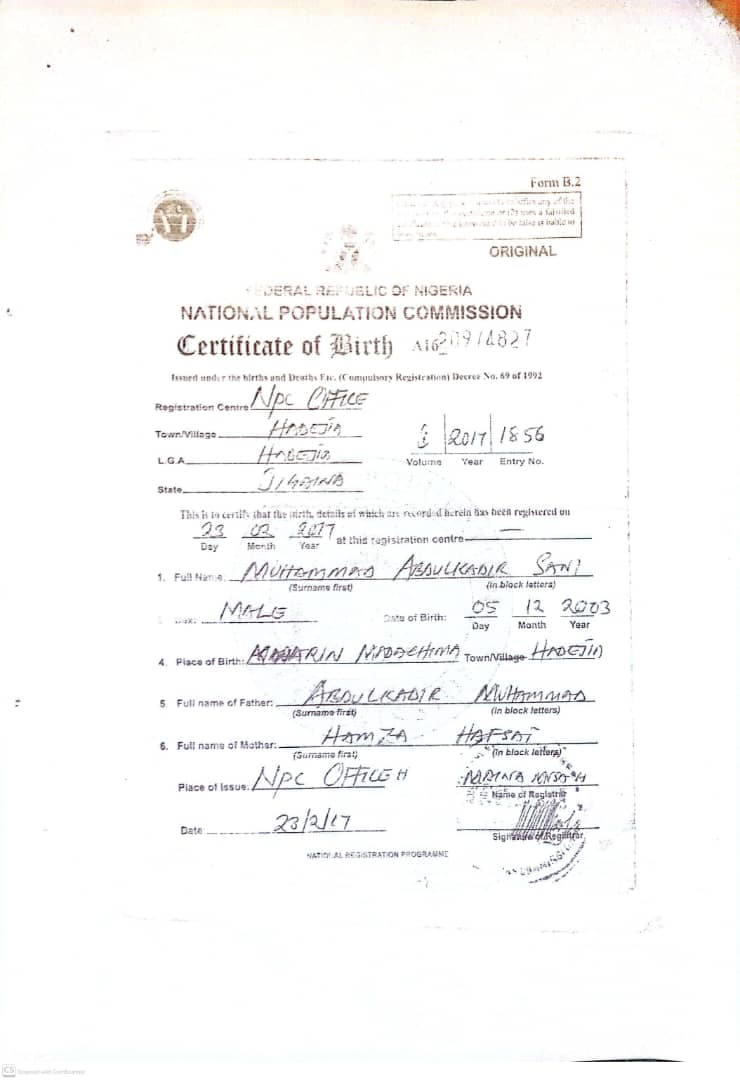 Form B.2
ORIGINAL
FEDERAL REPUBLIC OF NIGERIA
NATIONAL POPULATION COMMISSION
Certificate of Birth A16
Issued under the births and Deaths Etc. (Compulsory Registration) Decree No. 69 of 1992
Registration Centre NPC OFFICE
Town/Village HADEJIA
L.G.A. HADEJIA
2017 1856
Volume Year Entry No.
State JIGAWA
This is to certify that the birth, details of which are recorded herein has been registered on
23 02 2017 at this registration centre
Day Month Year
1. Full Name: MUHAMMAD ABDULKADIR SANI
(Surname first) (In block letters)
Sex: MALE Date of Birth: 05 12 2003
Day Month Year
4. Place of Birth: Town/Village HADEJIA
5. Full name of Father: ABDULKADIR MUHAMMAD
(Surname first) (In block letters)
6. Full name of Mother: HAMZA HAFSAT
(Surname first) (In block letters)
Place of Issue: NPC OFFICE H
Name of Registrar
Date 23/2/17
Signature of Registrar
NATIONAL REGISTRATION PROGRAMME
CS Scanned with CamScanner